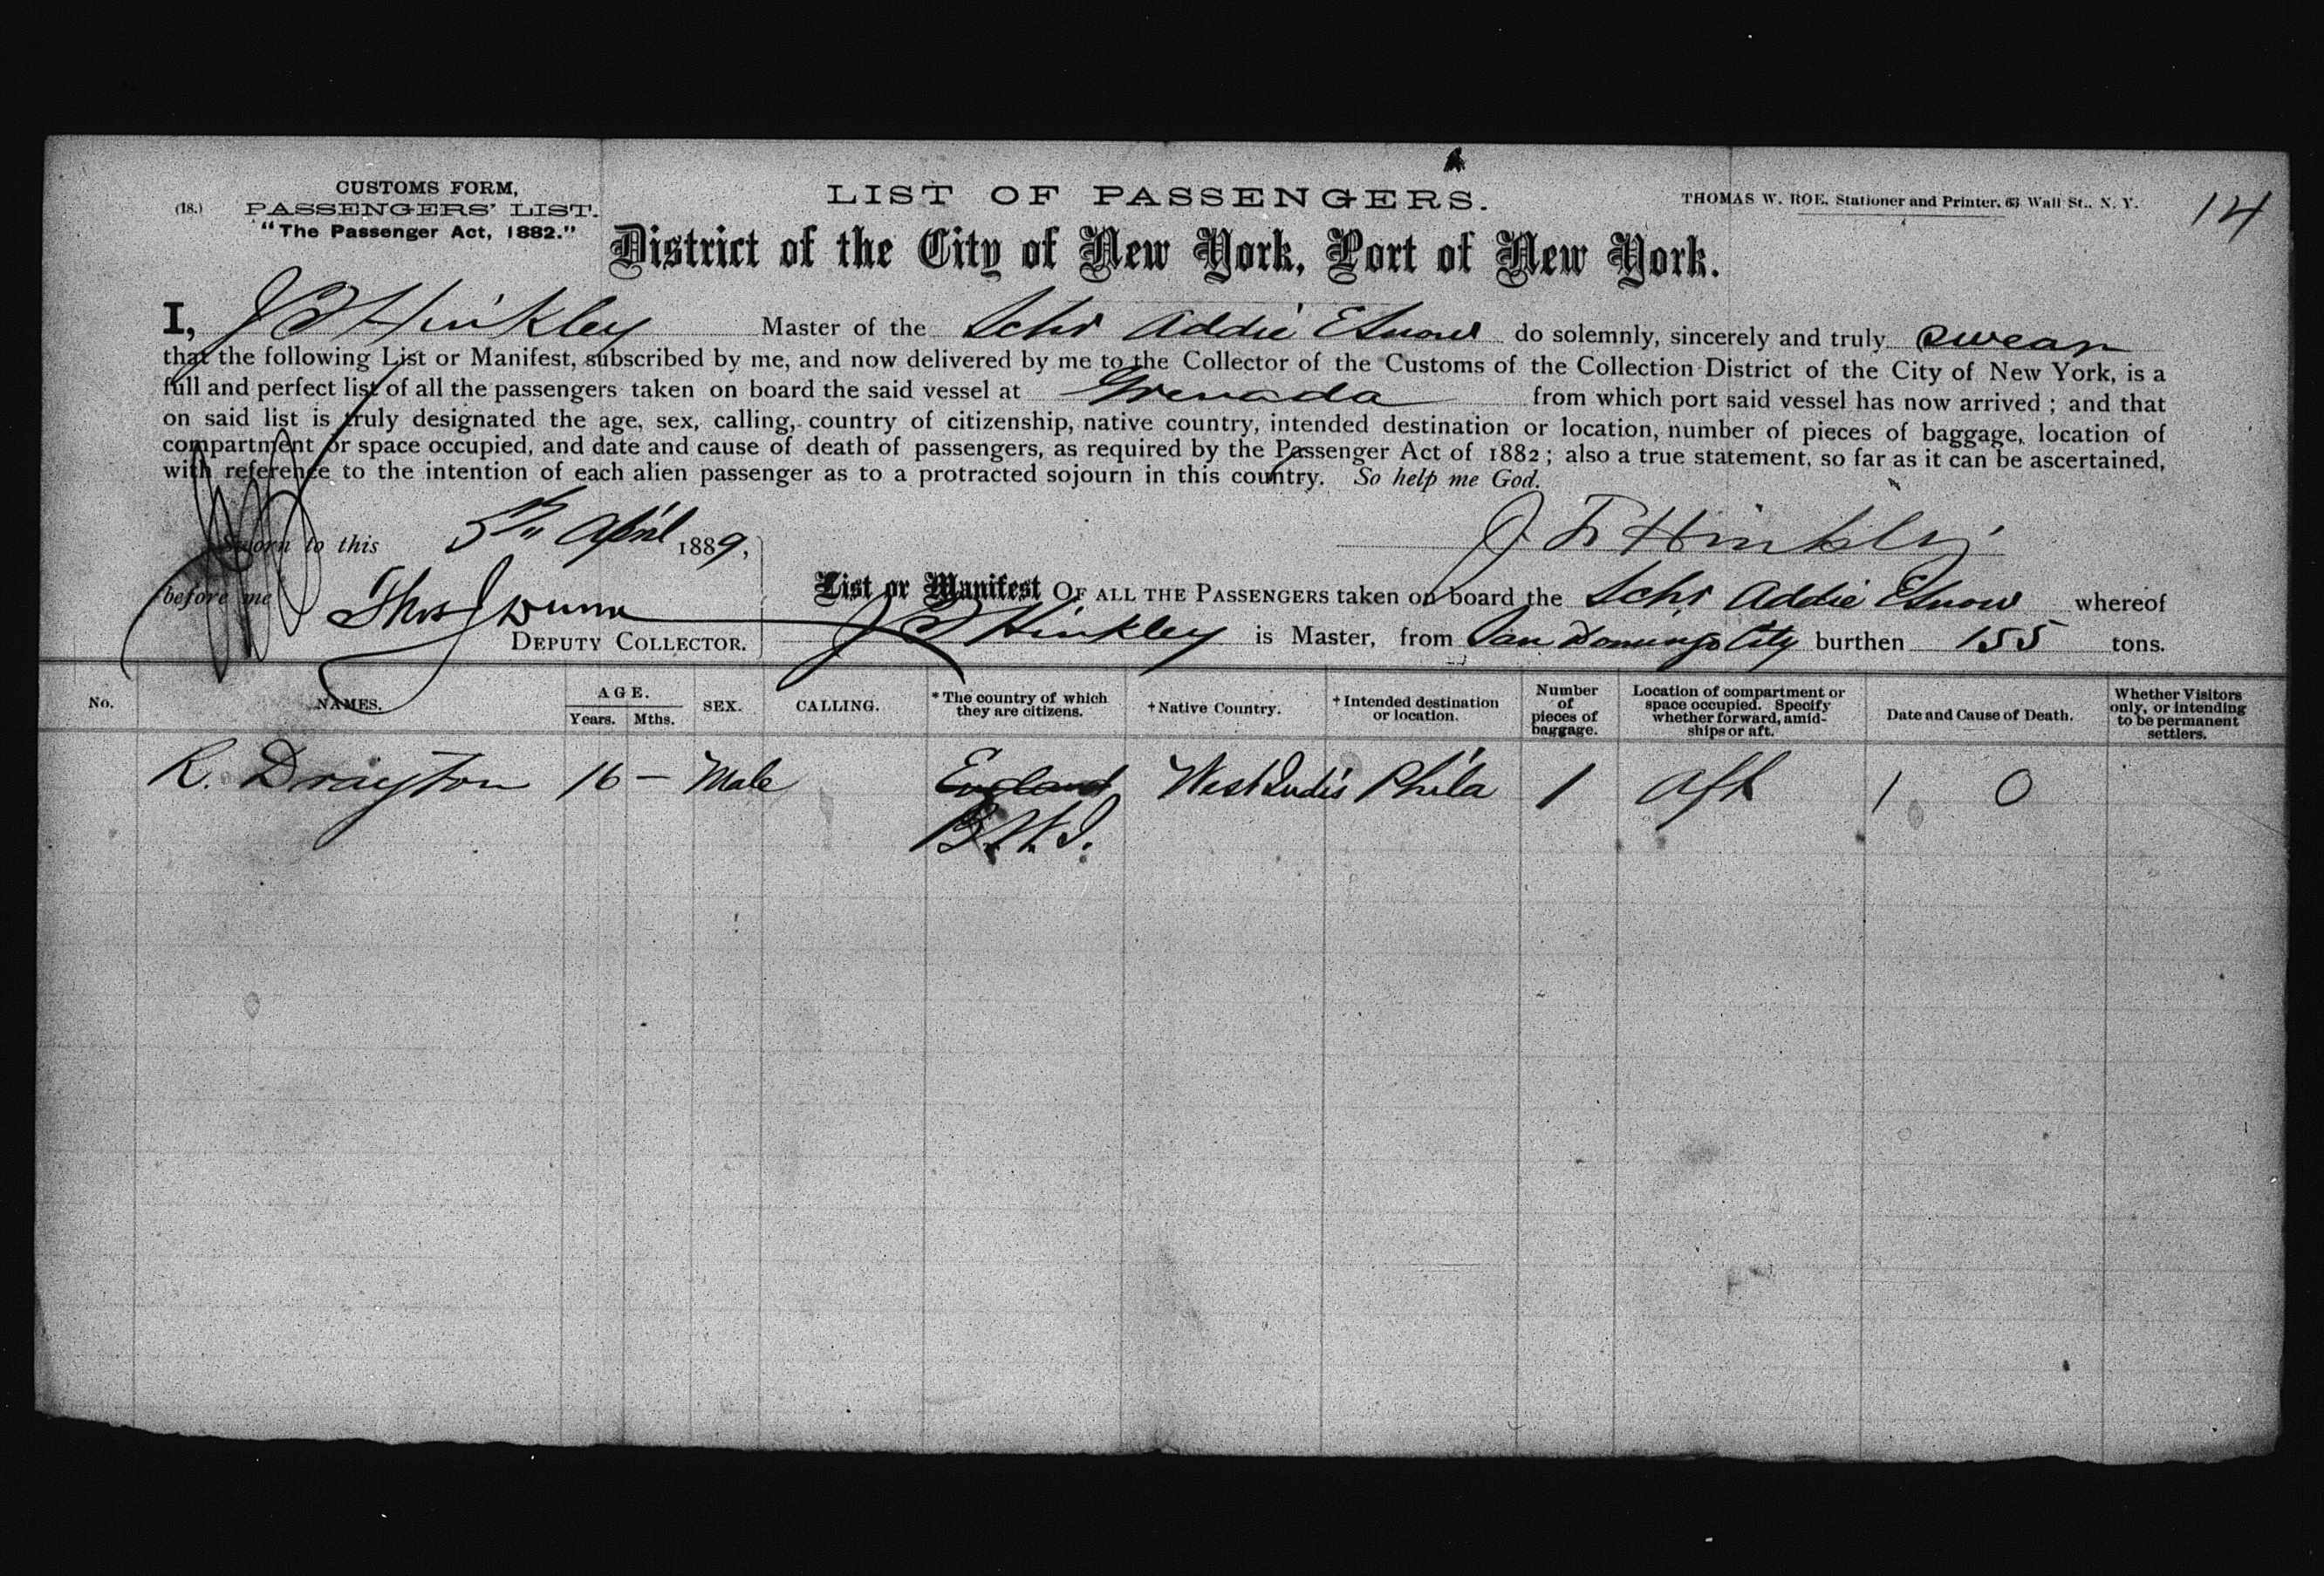 CUSTOMS FORM,
(18.) PASSENGERS' LIST.
"The Passenger Act, 1882."
LIST OF PASSENGERS.
THOMAS W. ROE, Stationer and Printer, 63 Wall St., N. Y.
14
District of the City of New York, Port of New York.
I, J F Hinkley Master of the Schr Addie E Snow do solemnly, sincerely and truly swear
that the following List or Manifest, subscribed by me, and now delivered by me to the Collector of the Customs of the Collection District of the City of New York, is a
full and perfect list of all the passengers taken on board the said vessel at Grenada from which port said vessel has now arrived ; and that
on said list is truly designated the age, sex, calling, country of citizenship, native country, intended destination or location, number of pieces of baggage, location of
compartment or space occupied, and date and cause of death of passengers, as required by the Passenger Act of 1882 ; also a true statement, so far as it can be ascertained,
with reference to the intention of each alien passenger as to a protracted sojourn in this country. So help me God.
Sworn to this 5th April 1889,
J. F. Hinkley
before me Thos J Dunn
DEPUTY COLLECTOR.
List or Manifest OF ALL THE PASSENGERS taken on board the Schr Addie E Snow whereof
J F Hinkley is Master, from San Domingo City burthen 155 tons.
No. NAMES. AGE. Years. Mths. SEX. CALLING. * The country of which they are citizens. † Native Country. † Intended destination or location. Number of pieces of baggage. Location of compartment or space occupied. Specify whether forward, amidships or aft. Date and Cause of Death. Whether Visitors only, or intending to be permanent settlers.
R. Drayton 16 — Male England West Indis Phila 1 Aft 1 0
B.W.I.